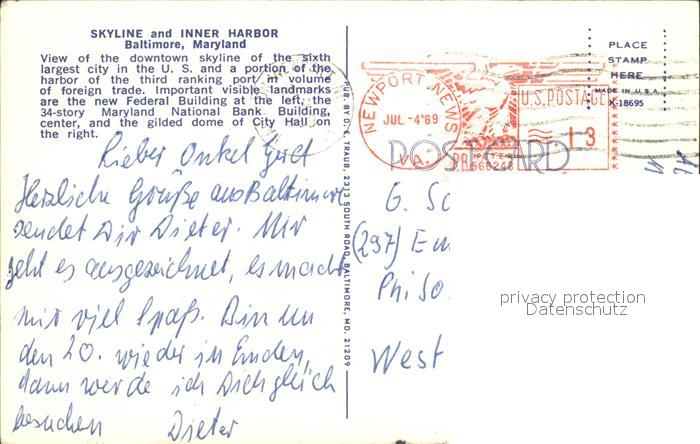 SKYLINE and INNER HARBOR
Baltimore, Maryland
View of the downtown skyline of the sixth
largest city in the U. S. and a portion of the
harbor of the third ranking port in volume
of foreign trade. Important visible landmarks
are the new Federal Building at the left, the
34-story Maryland National Bank Building,
center, and the gilded dome of City Hall on
the right.
Lieber Onkel Gert
Herzliche Grüße aus Baltimore
sendet Dir Dieter. Mir
geht es ausgezeichnet, es macht
mir viel Spaß. Bin um
den 20. wieder in Emden,
dann werde ich Dich gleich
besuchen Dieter
PUB. BY D. E. TRAUB, 2313 SOUTH ROAD, BALTIMORE, MD. 21209
NEWPORT NEWS
JUL -4'69
VA.
U.S. POSTAGE
.13
P.B.
METER
POSTCARD
PLACE
STAMP
HERE
MADE IN U.S.A.
K-18695
G. Sc
(297) Em
Philo
West
privacy protection
Datenschutz